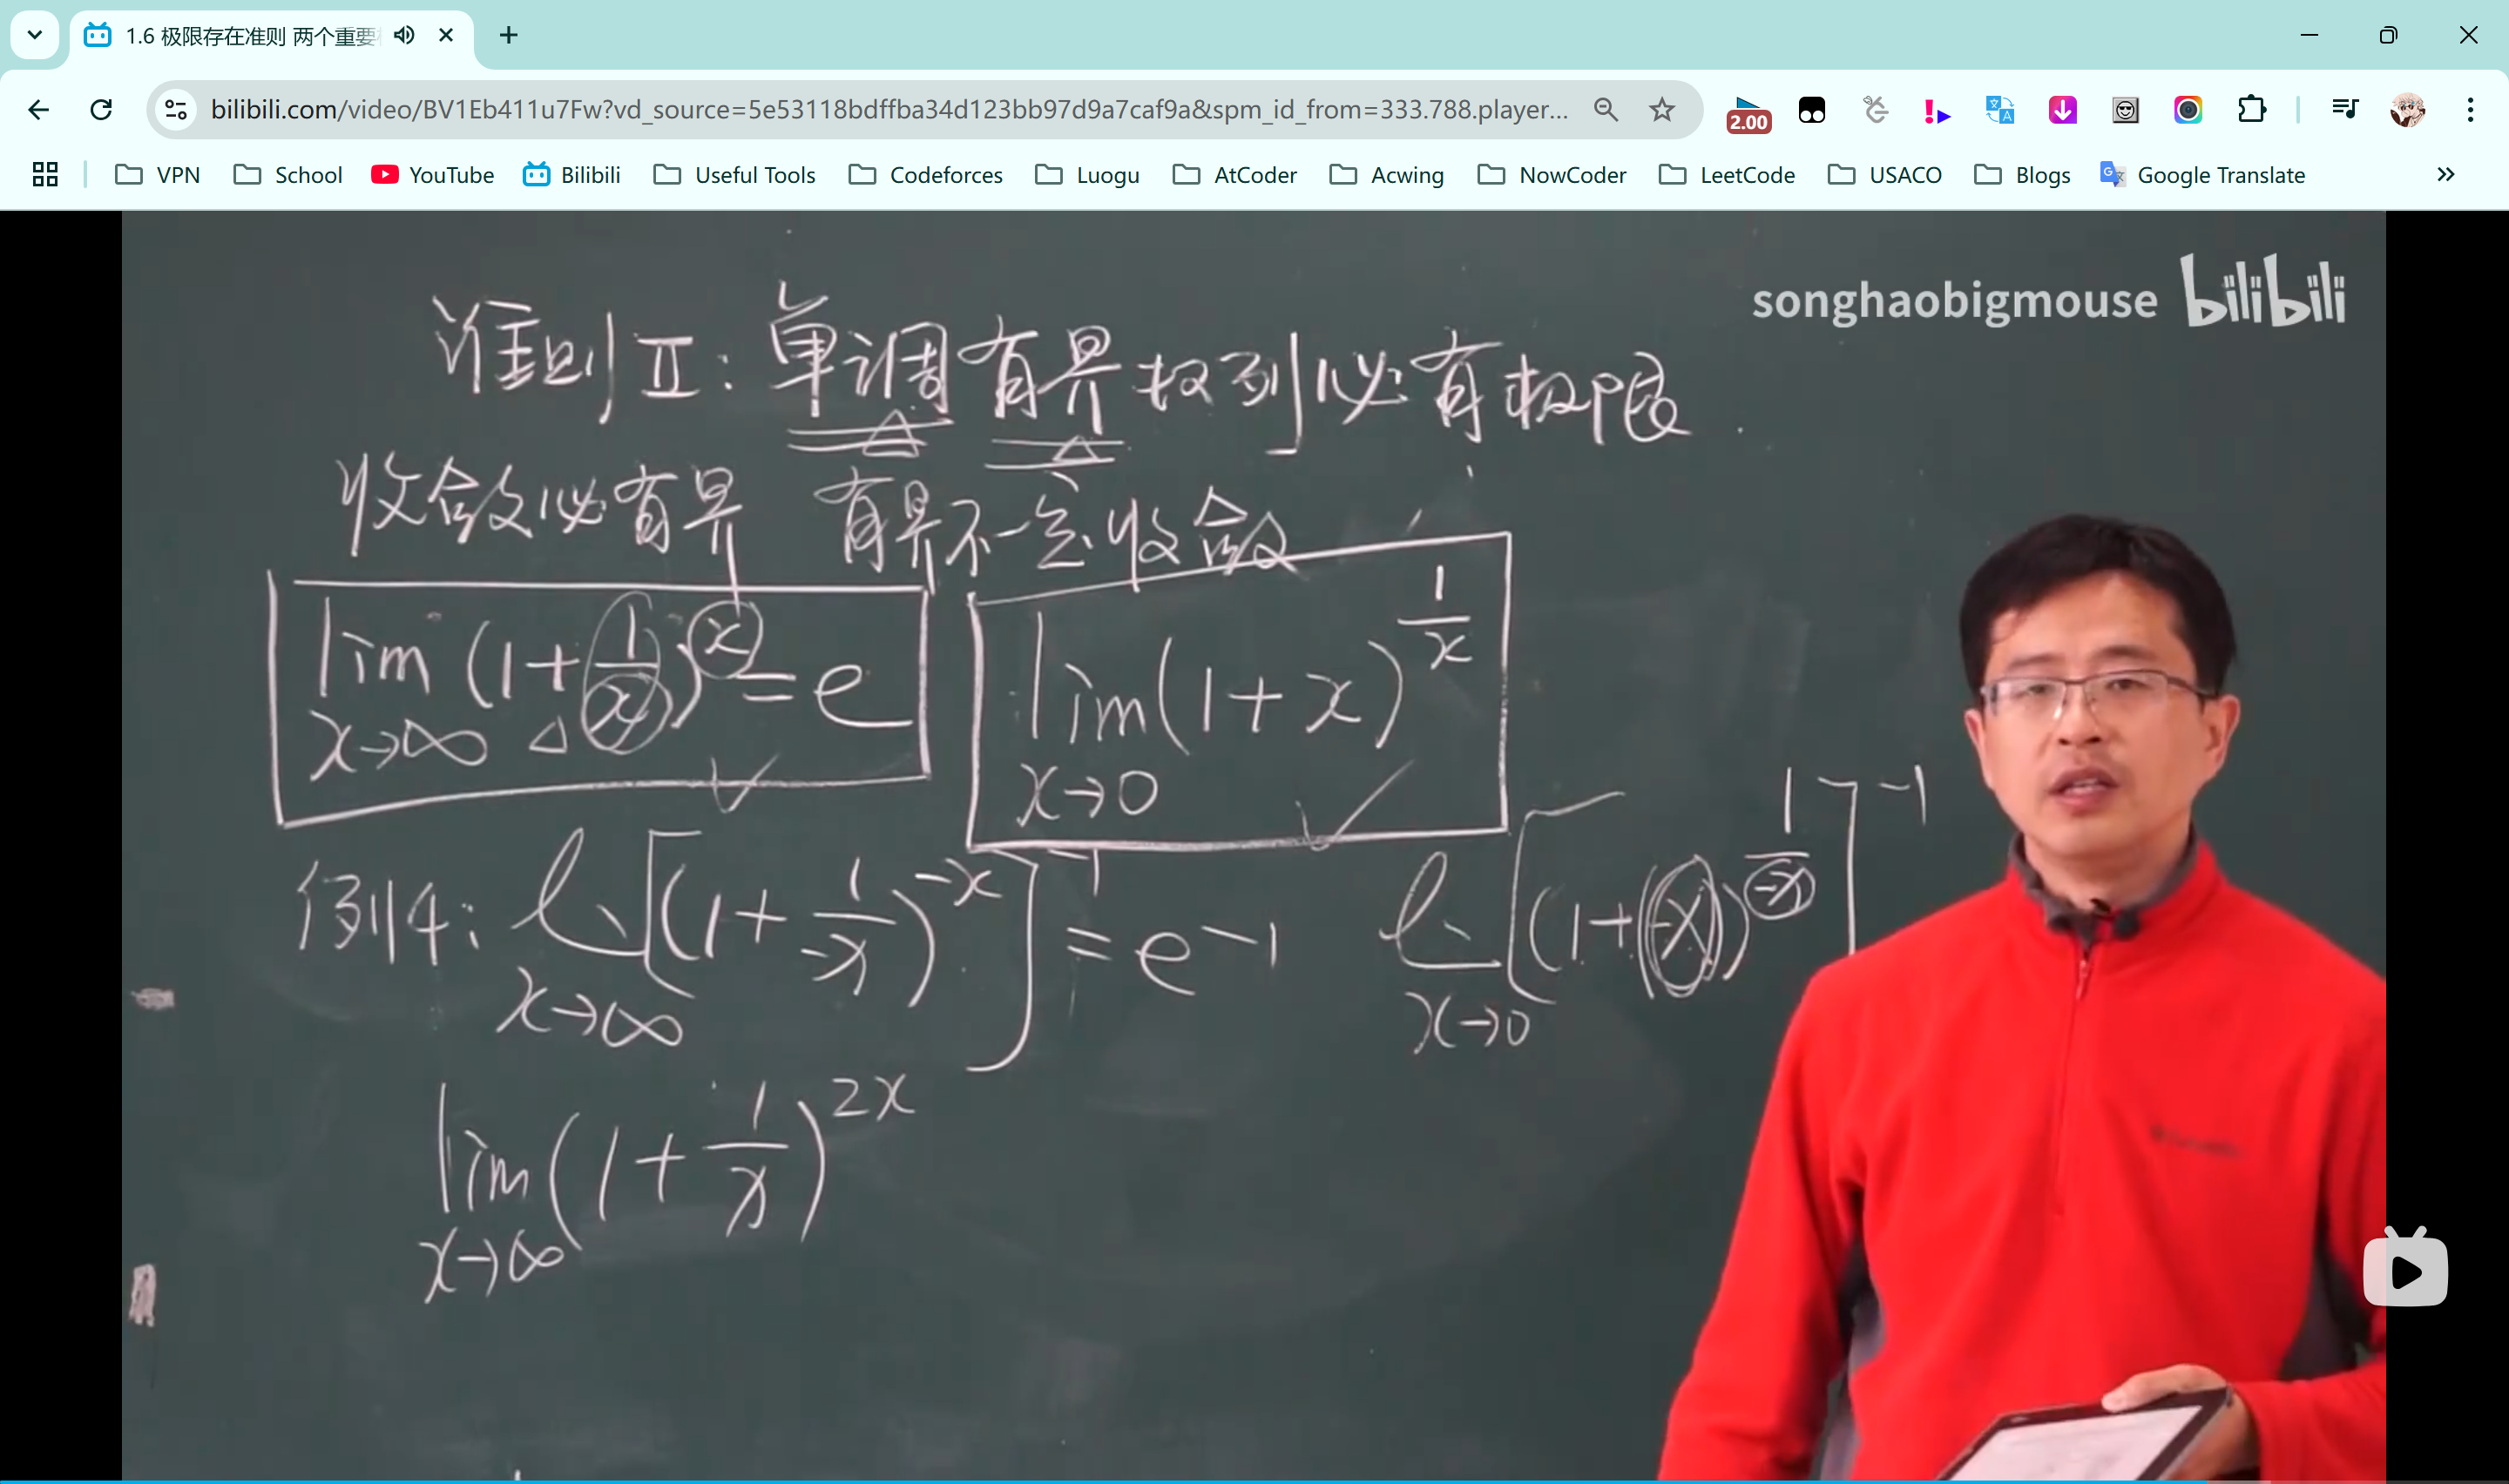 1.6 极限存在准则 两个重要
bilibili.com/video/BV1Eb411u7Fw?vd_source=5e53118bdffba34d123bb97d9a7caf9a&spm_id_from=333.788.player...
2.00
VPN School YouTube Bilibili Useful Tools Codeforces Luogu AtCoder Acwing NowCoder LeetCode USACO Blogs Google Translate
songhaobigmouse bilibili
准则 II：单调有界数列必有极限.
收敛必有界 有界不一定收敛
lim x→∞ (1+1/x)^x = e lim x→0 (1+x)^(1/x)
例4: lim x→∞ [(1+1/-x)^-x]^-1 = e^-1 lim x→0 [(1+(-x))^(1/-x)]^-1
lim x→∞ (1+1/x)^2x